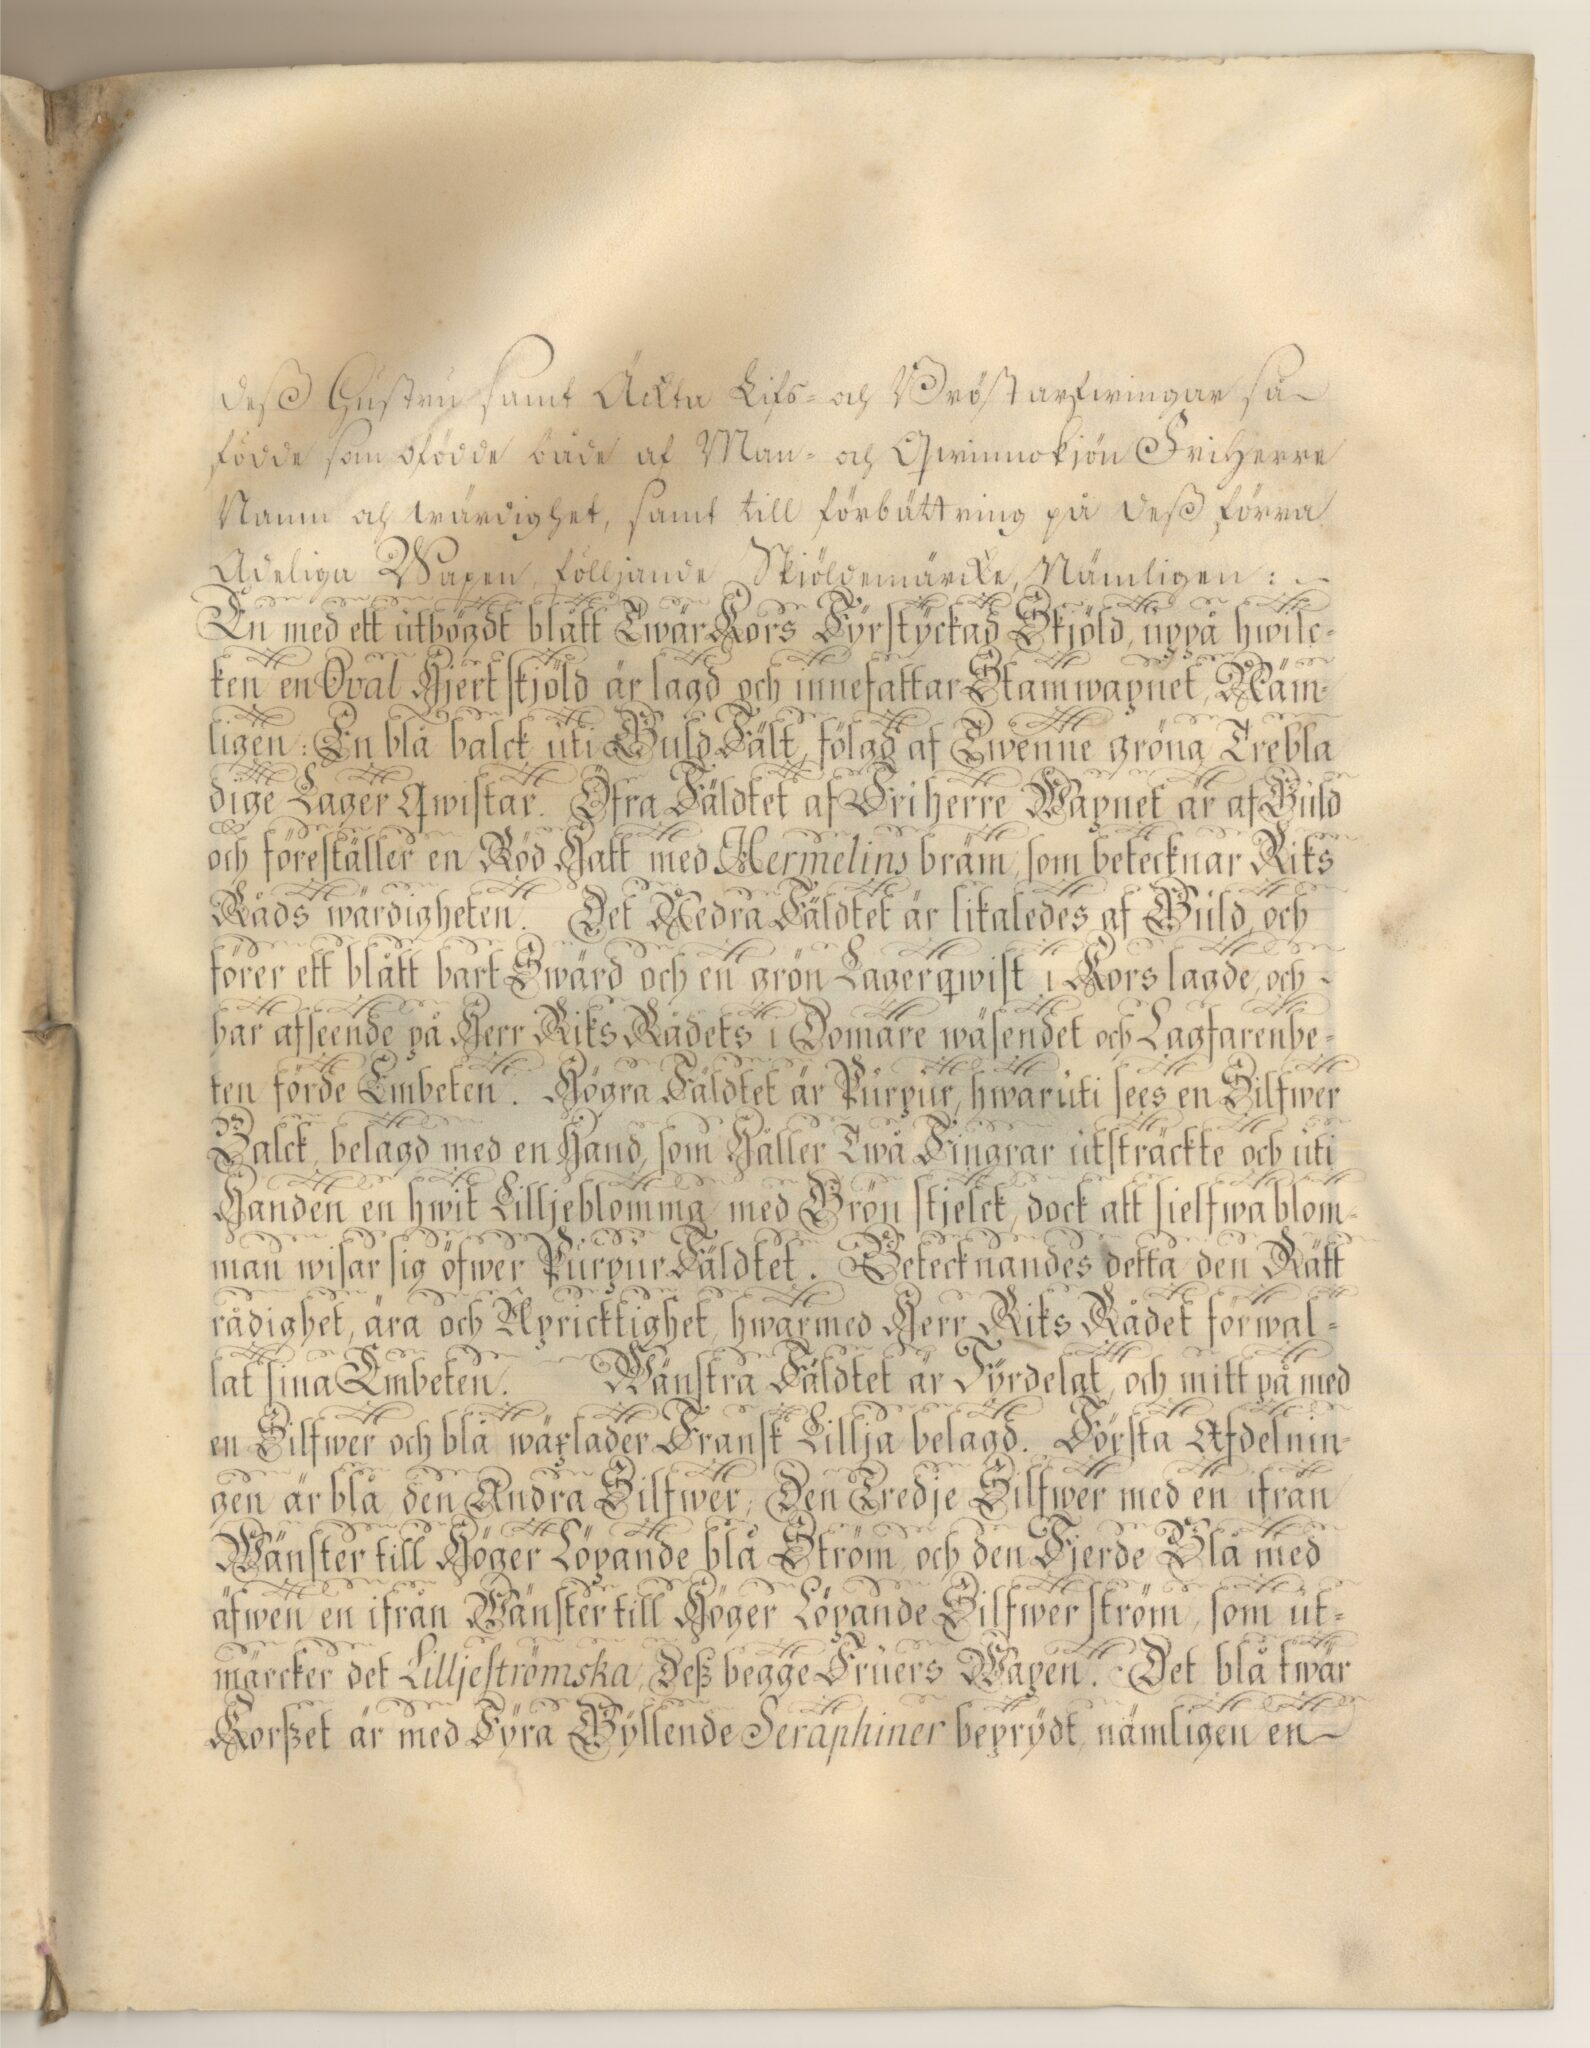 deß Hustru samt Äckta Lifs- och Bröstarfwingar så
födde som ofödde både af Man- och Qwinnokjön FriHerre
Namn och wärdighet, samt till förbättring på deß förra
Adeliga Wapen, fölljande Skjöldemärcke, Nämligen:
En med ett utbögdt blått TwärKors Fyrstyckad Skjöld, uppå hwilc-
ken en Oval Hjertskjöld är lagd och innefattar Stamwapnet, Näm-
ligen: En blå balck uti Guld Fält, fölgd af Twenne gröna Trebla
dige Lager Qwistar. Öfra Fäldtet af FriHerre Wapnet är af Guld
och föreställer en Röd Hatt med Hermelins bräm, som betecknar Riks
Råds wärdigheten. Det Nedra Fäldtet är likaledes af Guld, och
förer ett blått bart Swärd och en grön Lagerqwist i Kors lagde, och
har afseende på Herr Riks Rådets i Domare wäsendet och Lagfarenhe-
ten förde Embeten. Högra Fäldtet är Purpur, hwaruti sees en Silfwer
Balck, belagd med en Hand, som Håller Twå Fingrar utsträckte och uti
Handen en hwit Lilljeblomma med Grön stjelck, dock att sielfwa blom-
man wisar sig öfwer Purpur Fäldtet. Betecknandes detta den Rätt
rådighet, ära och Upricktighet, hwarmed Herr Riks Rådet förwal-
lat sina Embeten. Wänstra Fäldtet är Fyrdelat, och mitt på med
en Silfwer och blå wäxlader Fransk Lillja belagd. Första Afdelnin-
gen är blå, den Andra Silfwer, Den Tredje Silfwer med en ifrån
Wänster till Höger Löpande blå Ström, och den Fjerde Blå med
äfwen en ifrån Wänster till Höger Löpande Silfwer ström, som ut-
märcker det Lilljeströmska, Deß begge Fruers Wapen. Det blå twär
Korßet är med Fyra Gyllende Seraphiner beprydt, nämligen en